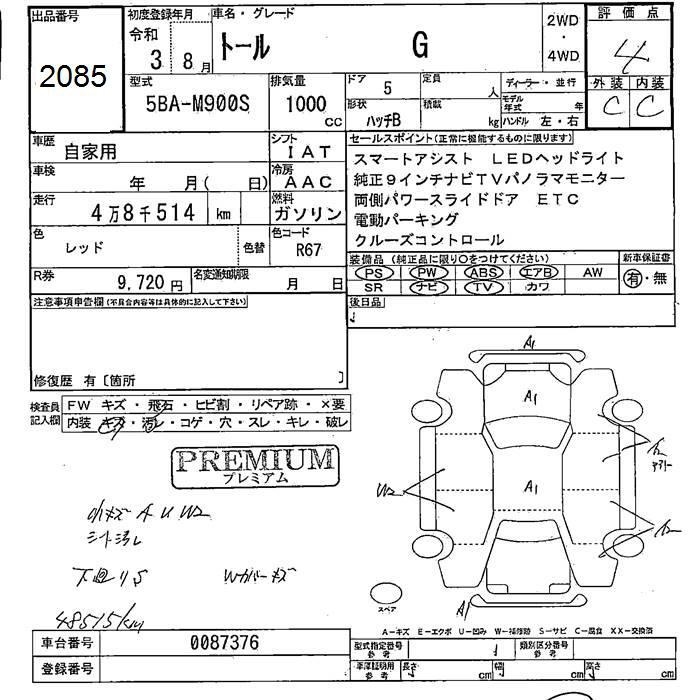 出品番号
2085
初度登録年月
令和
3 8月
車名・グレード
トール G
2WD
・
4WD
評価点
4
外装 内装
C C
型式
5BA-M900S
排気量
1000
CC
ドア 5
形状
ハッチB
定員
人
積載
kg
ディーラー・並行
モデル年式 年
ハンドル 左・右
車歴
自家用
車検
年 月( 日)
走行
4万8千514 km
色
レッド
色替
R券
9,720円
シフト
IAT
冷房
AAC
燃料
ガソリン
色コード
R67
名変通知期限
月 日
セールスポイント(正常に機能するものに限ります)
スマートアシスト LEDヘッドライト
純正9インチナビTVパノラマモニター
両側パワースライドドア ETC
電動パーキング
クルーズコントロール
装備品(純正品に限り○をつけてください)
PS PW ABS エアB AW
SR ナビ TV カワ
新車保証書
有・無
後日品
注意事項申告欄(不具合内容等は具体的に記入して下さい)
修復歴 有〔箇所 〕
検査員
記入欄
FW キズ・飛石・ヒビ割・リペア跡・×要
内装 キズ・汚レ・コゲ・穴・スレ・キレ・破レ
PREMIUM
プレミアム
小キズ A U W2
シート汚レ
下回りS
Wカバーキズ
48515km
A1
A1
A1
A1
W2
A2
A2
スペア
A-キズ E-エクボ U-凹み W-補修跡 S-サビ C-腐食 XX-交換済
車台番号
0087376
登録番号
型式指定番号
参考
類別区分番号
参考
車庫証明用
参考
長さ cm
幅 cm
高さ cm